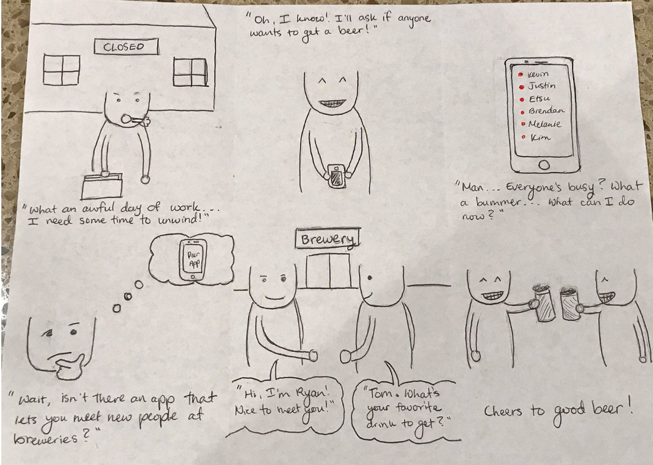 CLOSED
"What an awful day of work...
I need some time to unwind!"
"Oh, I know! I'll ask if anyone
wants to get a beer!"
Kevin
Justin
Etsu
Brendan
Melanie
Kim
"Man... Everyone's busy? What
a bummer... What can I do
now?"
Our
App
"Wait, isn't there an app that
lets you meet new people at
breweries?"
Brewery
"Hi, I'm Ryan!
Nice to meet you!"
"Tom. What's
your favorite
drink to get?"
Cheers to good beer!